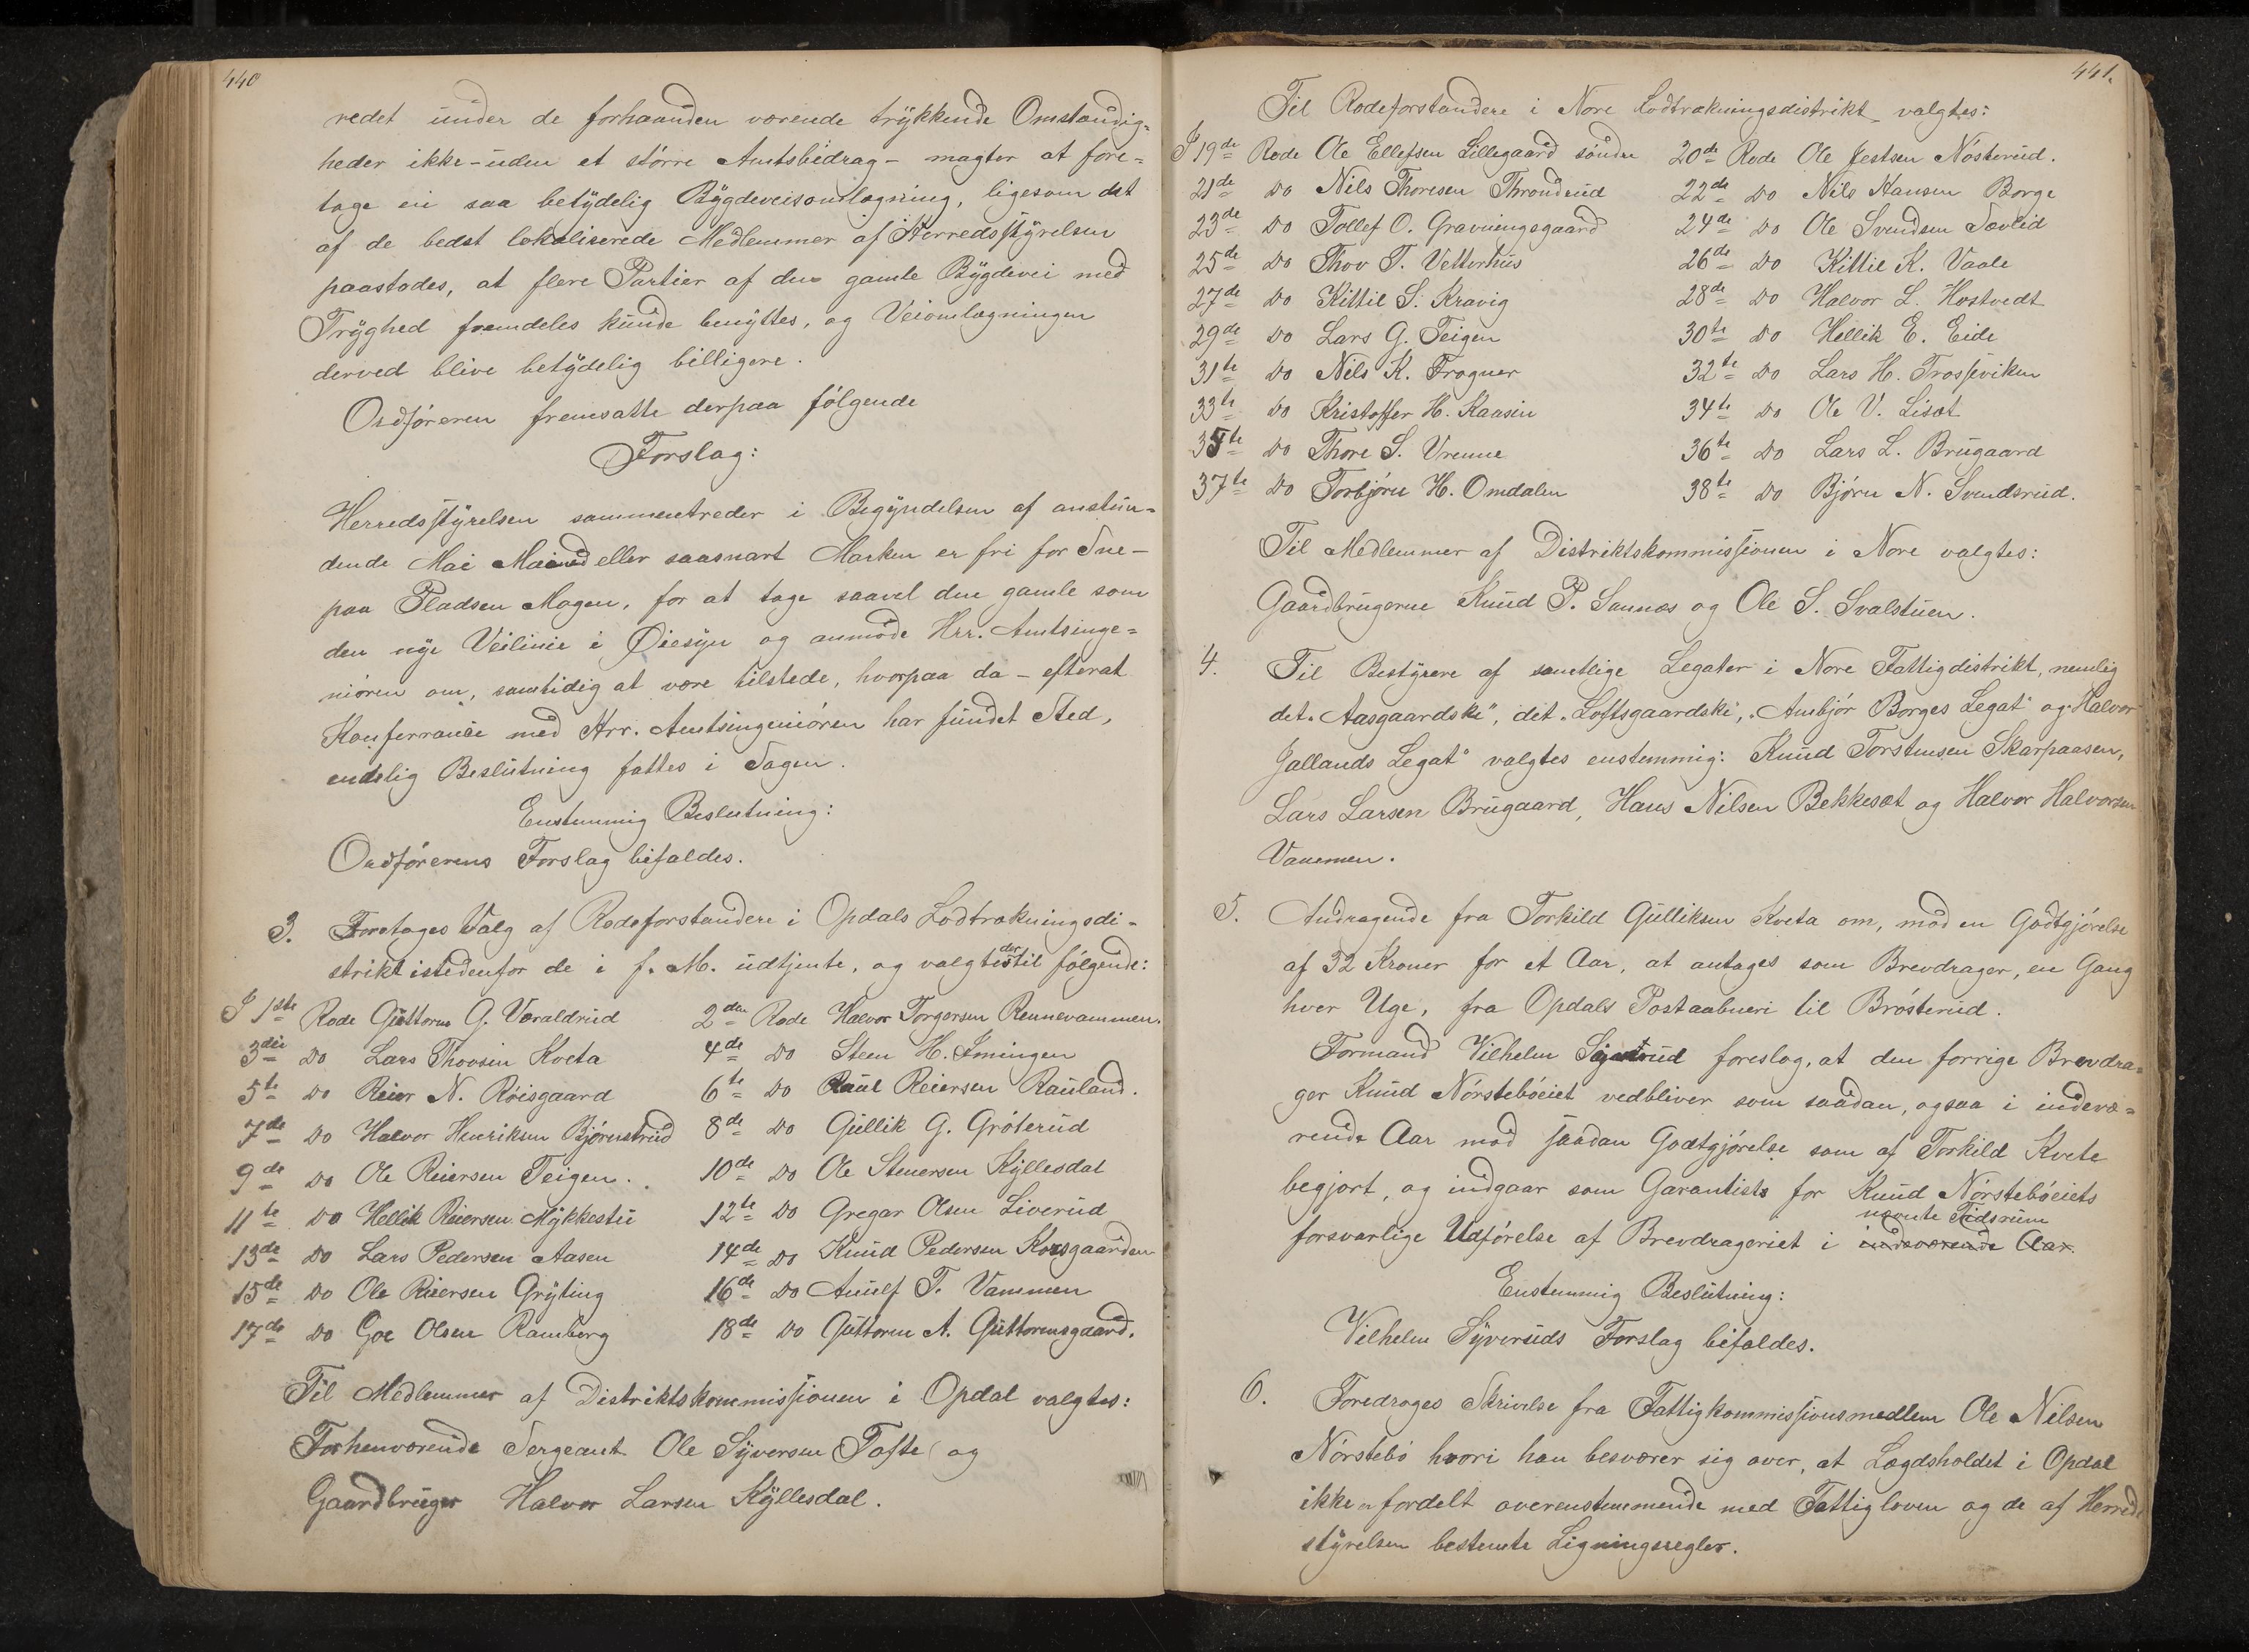 440
redet under de forhaanden værende trykkende Omstændig=
heder ikke - uden et større Amtsbidrag - magter at fore=
tage en saa betydelig Bygdeveisomlægning, ligesom det
af de bedst lokaliserede Medlemmer af Herredsstyrelsen
paastodes, at flere Partier af den gamle Bygdevei med
Tryghed fremdeles kunde benyttes, og Veiomlægningen
derved blive betydelig billigere.
Ordføreren fremsatte derpaa følgende
Forslag:
Herredsstyrelsen sammentreder i Begyndelsen af anstun=
dende Mai Maaned eller saasnart Marken er fri for Sne -
paa Pladsen Mogen, for at tage saavel den gamle som
den nye Veilinie i Øiesyn og anmode Hrr. Amtsinge=
niøren om, samtidig at være tilstede, hvorpaa da - efterat
Konferrance med Hrr. Amtsingeniøren har fundet Sted,
endelig Beslutning fattes i Sagen.
Enstemmig Beslutning:
Ordførerens Forslag bifaldes.
3. Foretoges Valg af Rodeforstandere i Opdals Lodtrækningsdi=
strikt istedenfor de i f. M. udtjente, og valgtes der til følgende:
I 1ste Rode Guttorm G. Væraldrud 2den Rode Halvor Torgersen Rennevammen.
3die Do Lars Thovsen Kveta 4de Do Steen H. Imingen
5te Do Reier N. Røisgaard 6te Do Paul Reiersen Rauland.
7de Do Halvor Henriksen Bjørnerstrud 8de Do Gullik G. Gröterud
9de Do Ole Reiersen Teigen. 10de Do Ole Stenersen Kyllesdal
11te Do Hellik Reiersen Mykkestu 12te Do Gregar Olsen Liverud
13de Do Lars Pedersen Aasen 14de Do Knud Pedersen Korsgaarden
15de Do Ole Reiersen Gryting 16de Do Anulf T. Vammen
17de Do Goe Olsen Ramberg 18de Do Guttorm A. Guttormsgaard.
Til Medlemmer af Distriktskommissionen i Opdal valgtes:
Forhenværende Sergeant Ole Syversen Tofte og
Gaardbruger Halvor Larsen Kyllesdal.
441.
Til Rodeforstandere i Nore Lodtrækningsdistrikt valgtes:
I 19de Rode Ole Ellefsen Lillegaard søndre 20de Rode Ole Jestsen Nösterud.
21de Do Nils Thoresen Throndrud 22de Do Nils Hansen Borge
23de Do Tollef O. Gravningsgaard 24de Do Ole Svendsen Sævlid
25de Do Thov T. Vetterhus 26de Do Kittil K. Vaale
27de Do Kittil S. Kravig 28de Do Halvor L. Hostvedt
29de Do Lars G. Teigen 30te Do Hellik E. Eide
31te Do Nils K. Frogner 32te Do Lars H. Trosseviken
33te Do Kristoffer H. Kaasin 34te Do Ole V. Lisæt
35te Do Thore S. Vrenne 36te Do Lars L. Brugaard
37te Do Torbjørn H. Omdalen 38te Do Bjørn N. Svendsrud.
Til Medlemmer af Distriktskommissionen i Nore valgtes:
Gaardbrugerne Knud P. Sannæs og Ole S. Svalstuen.
4. Til Bestyrere af samtlige Legater i Nore Fattigdistrikt, nemlig
det „Aasgaardske", det „Loftsgaardske", „Ambjør Borges Legat" og „Halvor
Jallands Legat" valgtes enstemmig: Knud Torstensen Skarpaasen,
Lars Larsen Brugaard, Hans Nilsen Bekkesæt og Halvor Halvorsen
Vanemen.
5. Andragende fra Torkild Gulliksen Kveta om, mod en Godtgjørelse
af 32 Kroner for et Aar, at antages som Brevdrager, en Gang
hver Uge, fra Opdals Postaabneri til Brösterud.
Formand Vilhelm Syverud foreslog, at den forrige Brevdra=
ger Knud Nørstebøeiet vedbliver som saadan, ogsaa i indevæ=
rende Aar mod saadan Godtgjørelse som af Torkild Kveta
begjært, og indgaar som Garantist for Knud Nørstebøeiets
nævnte Tidsrum
forsvarlige Udførelse af Brevdrageriet i indeværende Aar.
Enstemmig Beslutning:
Vilhelm Syveruds Forslag bifaldes.
6. Foredroges Skrivelse fra Fattigkommissionsmedlem Ole Nilsen
Nørstebø hvori han besværer sig over, at Lægdsholdet i Opdal
ikke er fordelt overenstemmende med Fattigloven og de af Herreds
styrelsen bestemte Ligningsregler.